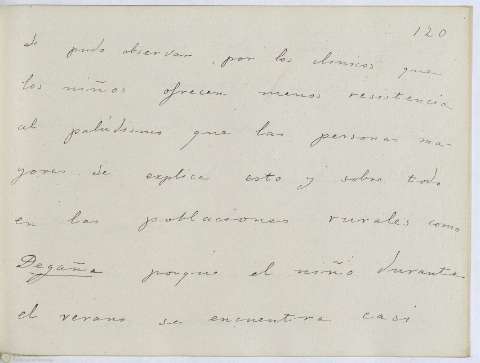 120
Se pudo observar por los clínicos que
los niños ofrecen menos resistencia
al palúdismo que las personas ma-
yores. Se explica esto y sobre todo
en las poblaciones rurales como
Degaña porque el niño durante
el verano se encuentra casi